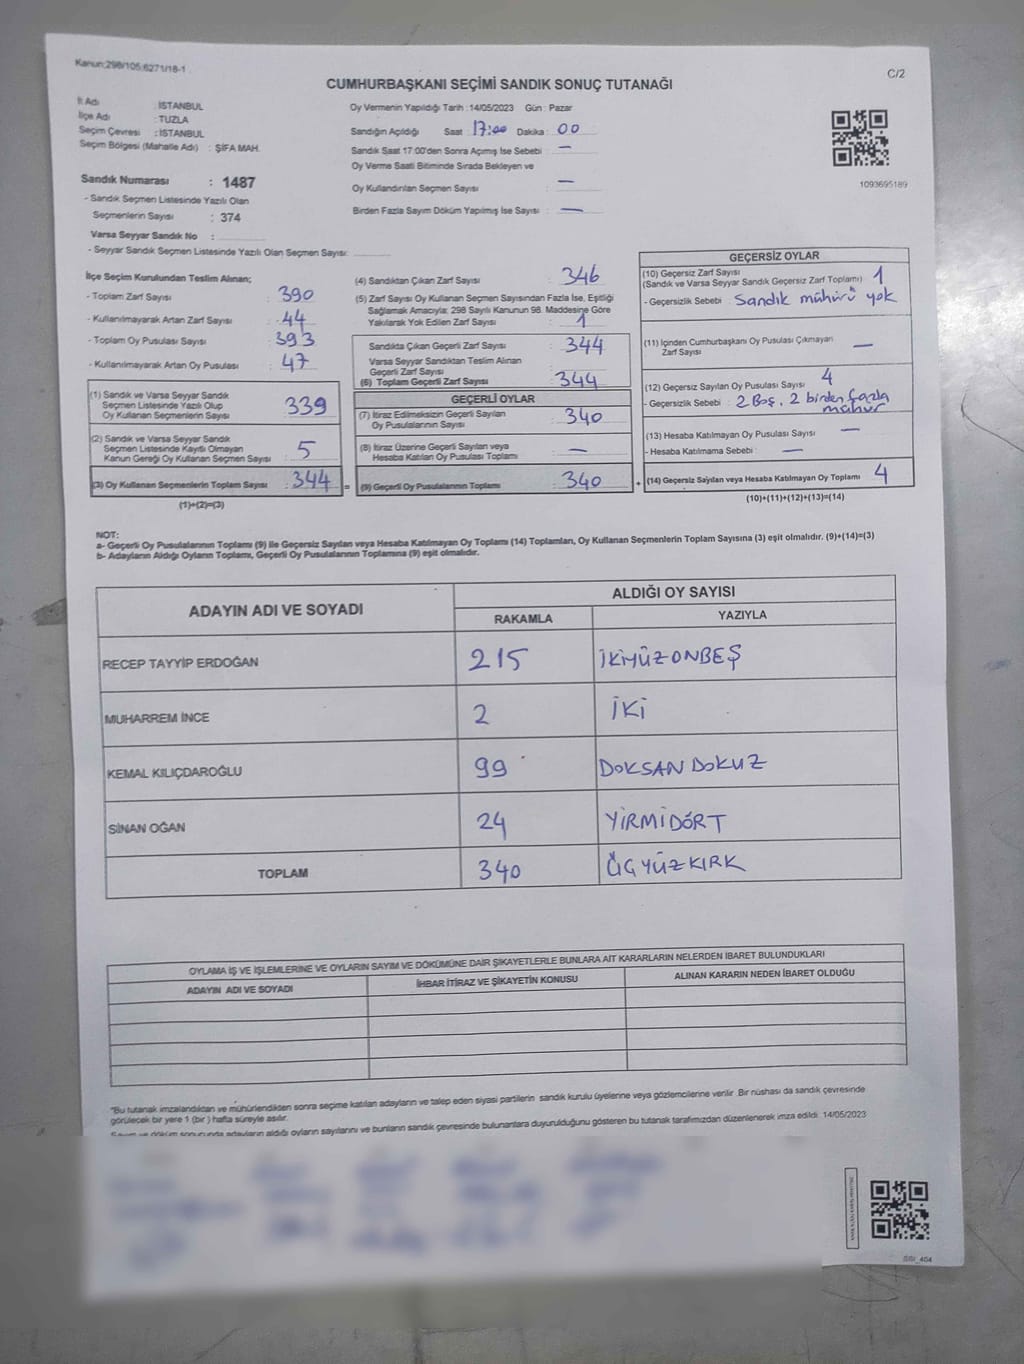 Kanun:298/105;6271/18-1
C/2
CUMHURBAŞKANI SEÇİMİ SANDIK SONUÇ TUTANAĞI
İl Adı : İSTANBUL
İlçe Adı : TUZLA
Seçim Çevresi : İSTANBUL
Seçim Bölgesi (Mahalle Adı) : ŞİFA MAH.
Sandık Numarası : 1487
- Sandık Seçmen Listesinde Yazılı Olan
Seçmenlerin Sayısı : 374
Varsa Seyyar Sandık No :
- Seyyar Sandık Seçmen Listesinde Yazılı Olan Seçmen Sayısı:
Oy Vermenin Yapıldığı Tarih : 14/05/2023 Gün : Pazar
Sandığın Açıldığı Saat : 17:00 Dakika : 00
Sandık Saat 17:00'den Sonra Açımış İse Sebebi : —
Oy Verme Saati Bitiminde Sırada Bekleyen ve
Oy Kullandırılan Seçmen Sayısı : —
Birden Fazla Sayım Döküm Yapılmış İse Sayısı : —
1093695189
İlçe Seçim Kurulundan Teslim Alınan;
- Toplam Zarf Sayısı : 390
- Kullanılmayarak Artan Zarf Sayısı : 44
- Toplam Oy Pusulası Sayısı : 393
- Kullanılmayarak Artan Oy Pusulası : 47
(1) Sandık ve Varsa Seyyar Sandık
Seçmen Listesinde Yazılı Olup
Oy Kullanan Seçmenlerin Sayısı : 339
(2) Sandık ve Varsa Seyyar Sandık
Seçmen Listesinde Kayıtlı Olmayan
Kanun Gereği Oy Kullanan Seçmen Sayısı : 5
(3) Oy Kullanan Seçmenlerin Toplam Sayısı : 344 =
(1)+(2)=(3)
(4) Sandıktan Çıkan Zarf Sayısı : 346
(5) Zarf Sayısı Oy Kullanan Seçmen Sayısından Fazla İse, Eşitliği
Sağlamak Amacıyla; 298 Sayılı Kanunun 98. Maddesine Göre
Yakılarak Yok Edilen Zarf Sayısı : 1
Sandıkta Çıkan Geçerli Zarf Sayısı : 344
Varsa Seyyar Sandıktan Teslim Alınan
Geçerli Zarf Sayısı :
(6) Toplam Geçerli Zarf Sayısı : 344
GEÇERLİ OYLAR
(7) İtiraz Edilmeksizin Geçerli Sayılan
Oy Pusulalarının Sayısı : 340
(8) İtiraz Üzerine Geçerli Sayılan veya
Hesaba Katılan Oy Pusulası Toplamı : —
(9) Geçerli Oy Pusulalarının Toplamı : 340 +
GEÇERSİZ OYLAR
(10) Geçersiz Zarf Sayısı
(Sandık ve Varsa Seyyar Sandık Geçersiz Zarf Toplamı) : 1
- Geçersizlik Sebebi : Sandık mühürü yok
(11) İçinden Cumhurbaşkanı Oy Pusulası Çıkmayan
Zarf Sayısı : —
(12) Geçersiz Sayılan Oy Pusulası Sayısı : 4
- Geçersizlik Sebebi : 2 Boş, 2 birden fazla
mühür
(13) Hesaba Katılmayan Oy Pusulası Sayısı : —
- Hesaba Katılmama Sebebi : —
(14) Geçersiz Sayılan veya Hesaba Katılmayan Oy Toplamı : 4
(10)+(11)+(12)+(13)=(14)
NOT:
a- Geçerli Oy Pusulalarının Toplamı (9) ile Geçersiz Sayılan veya Hesaba Katılmayan Oy Toplamı (14) Toplamları, Oy Kullanan Seçmenlerin Toplam Sayısına (3) eşit olmalıdır. (9)+(14)=(3)
b- Adayların Aldığı Oyların Toplamı, Geçerli Oy Pusulalarının Toplamına (9) eşit olmalıdır.
ADAYIN ADI VE SOYADI
ALDIĞI OY SAYISI
RAKAMLA YAZIYLA
RECEP TAYYİP ERDOĞAN 215 İKİYÜZONBEŞ
MUHARREM İNCE 2 İKİ
KEMAL KILIÇDAROĞLU 99 DOKSAN DOKUZ
SİNAN OĞAN 24 YİRMİDÖRT
TOPLAM 340 ÜÇYÜZKIRK
OYLAMA İŞ VE İŞLEMLERİNE VE OYLARIN SAYIM VE DÖKÜMÜNE DAİR ŞİKAYETLERLE BUNLARA AİT KARARLARIN NELERDEN İBARET BULUNDUKLARI
ADAYIN ADI VE SOYADI İHBAR İTİRAZ VE ŞİKAYETİN KONUSU ALINAN KARARIN NEDEN İBARET OLDUĞU
"Bu tutanak imzalandıktan ve mühürlendikten sonra seçime katılan adayların ve talep eden siyasi partilerin sandık kurulu üyelerine veya gözlemcilerine verilir. Bir nüshası da sandık çevresinde
görülecek bir yere 1 (bir ) hafta süreyle asılır.
Sayım ve döküm sonucunda adayların aldığı oyların sayılarını ve bunların sandık çevresinde bulunanlara duyurulduğunu gösteren bu tutanak tarafımızdan düzenlenerek imza edildi. 14/05/2023